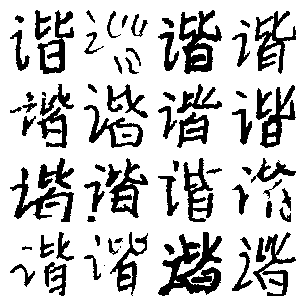 谐谐谐谐
谐谐谐谐
谐谐谐谐
谐谐谐谐